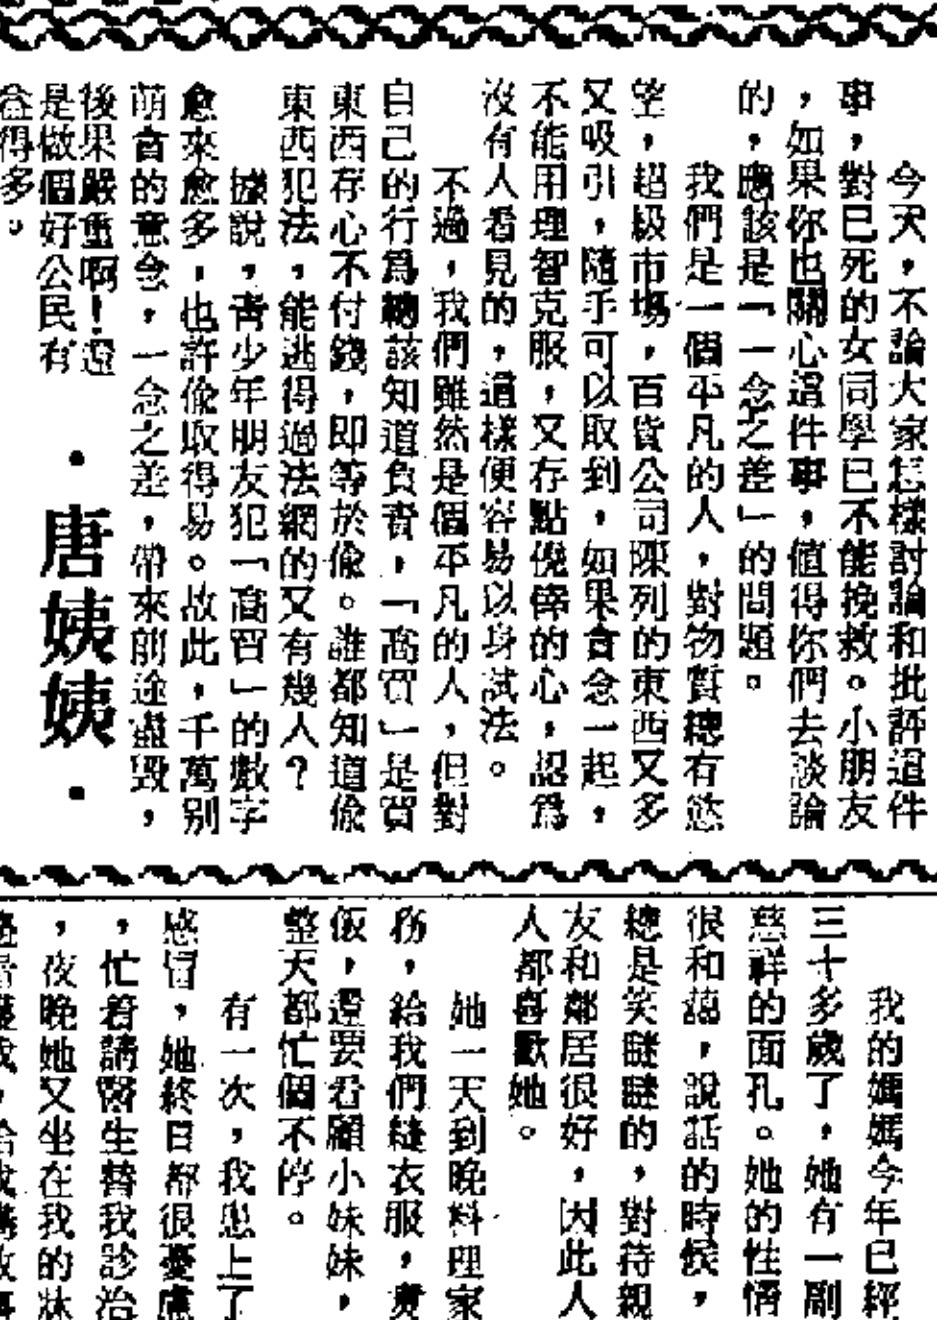 今天，不論大家怎樣討論和批評這件
事，對已死的女同學已不能挽救。小朋友
，如果你也關心這件事，值得你們去談論
的，應該是「一念之差」的問題。
我們是一個平凡的人，對物質總有慾
望，超級市場，百貨公司陳列的東西又多
又吸引，隨手可以取到，如果貪念一起，
不能用理智克服，又存點僥倖的心，認爲
沒有人看見的，這樣便容易以身試法。
不過，我們雖然是個平凡的人，但對
自己的行爲總該知道負責，「高買」是買
東西存心不付錢，即等於偷。誰都知道偷
東西犯法，能逃得過法網的又有幾人？
據說，青少年朋友犯「高買」的數字
愈來愈多，也許偷取得易。故此，千萬别
萌貪的意念，一念之差，帶來前途盡毀，
後果嚴重啊！還
是做個好公民有
益得多。
·唐姨姨·
我的媽媽今年已經
三十多歲了，她有一副
慈祥的面孔。她的性情
很和藹，說話的時候，
總是笑瞇瞇的，對待親
友和鄰居很好，因此人
人都喜歡她。
她一天到晚料理家
務，給我們縫衣服，煑
飯，還要看顧小妹妹，
整天都忙個不停。
有一次，我患上了
感冒，她終日都很憂慮
，忙着請醫生替我診治
，夜晚她又坐在我的牀